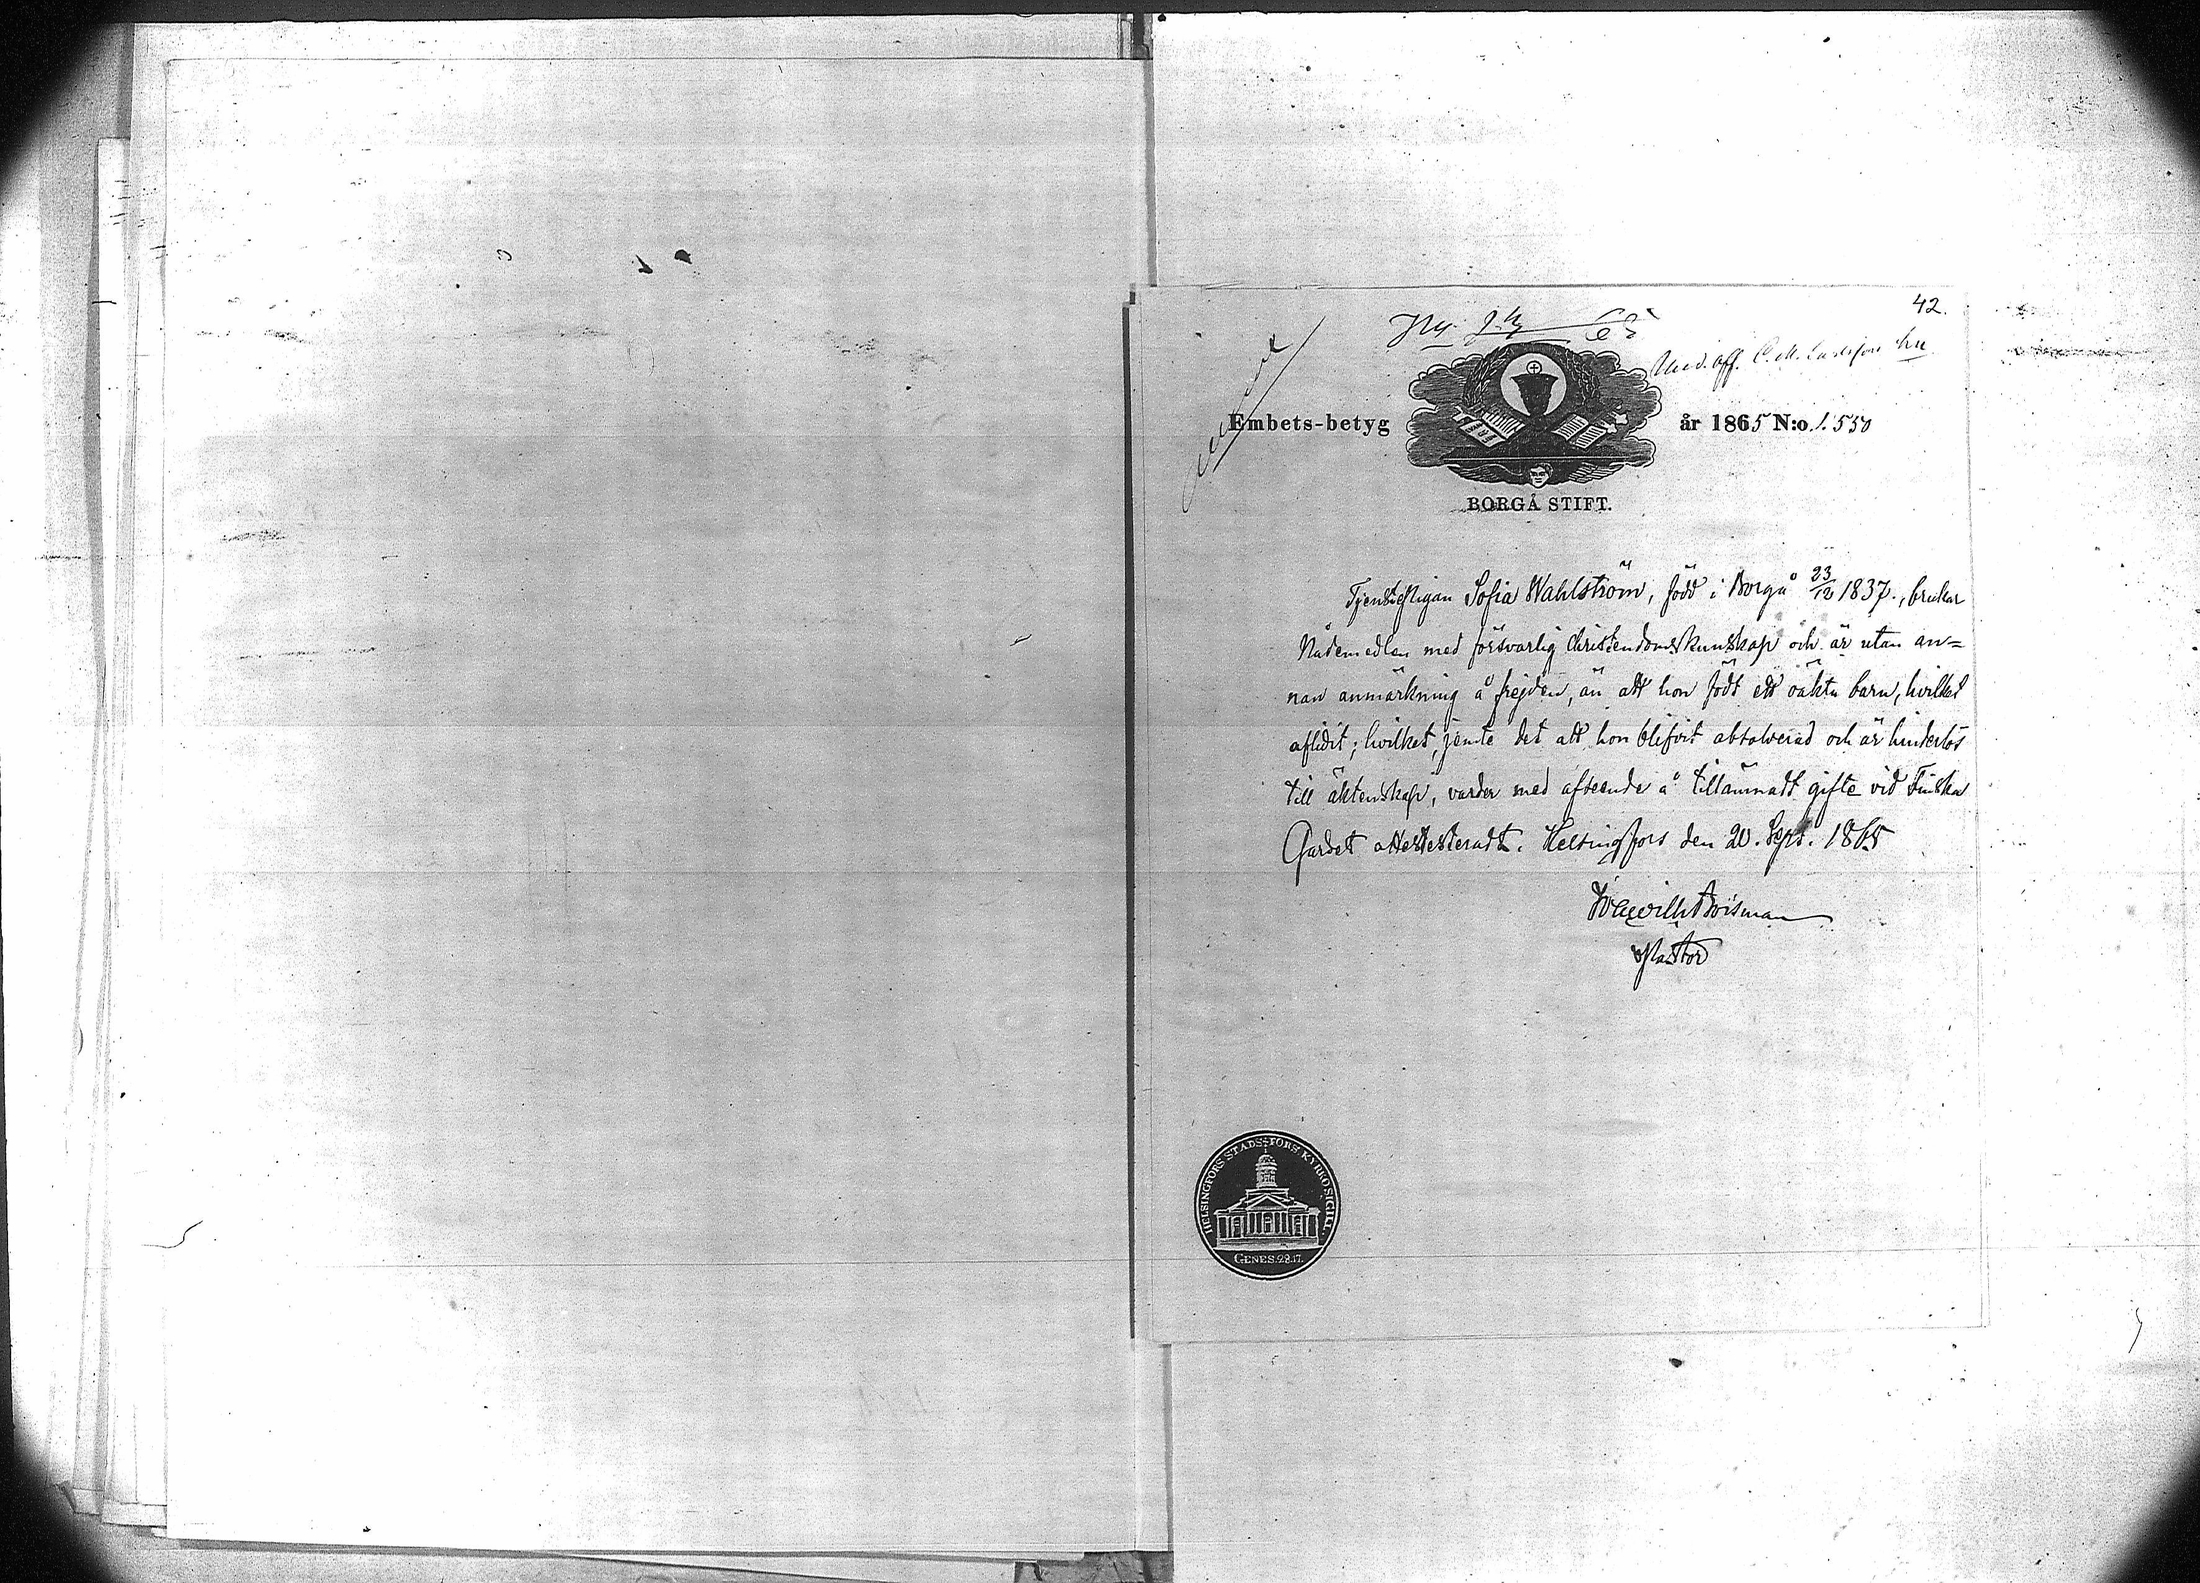 42.
Und. off. C. M. hu
Embets-betyg år 1865 N:o 1.550
BORGÅ STIFT.
Tjenstefligan Sofia Wahlström, född i Borgå 23/12 1837., brukar
Nådemedlen med försvarlig christendomskunskap och är utan an=
nan anmärkning å frejden, än att hon födt ett oäkta barn, hvilket
aflidit; hvilket, jemte det att hon blifvit absolverad och är hinderlös
till äktenskap, varder med afseende å tillämnadt gifte vid Finska
Gardet attesteradt. Helsingfors den 20. Sept. 1865
Pastor
HELSINGFORS STADS-FÖRS. KYRKOSIGILL.
GENES. 28.17.